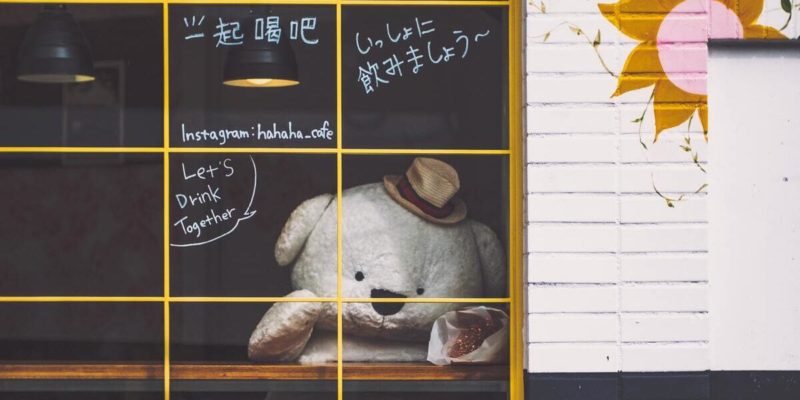 一起喝吧
いっしょに
飲みましょう～
Instagram:hahaha_cafe
Let's
Drink
Together